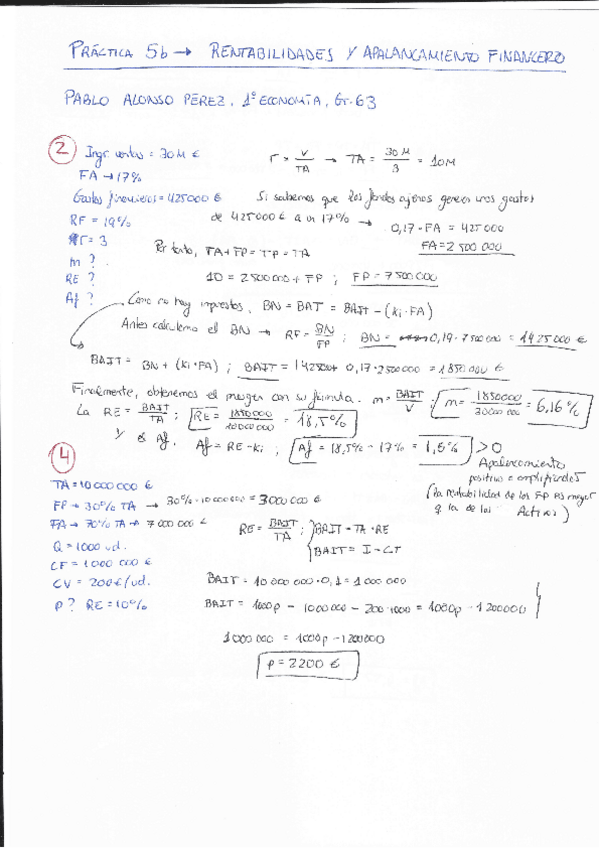 PRÁCTICA 5b → RENTABILIDADES Y APALANCAMIENTO FINANCIERO
PABLO ALONSO PÉREZ, 1º ECONOMÍA, Gr. 63
2
Ingr. ventas = 30M €
FA → 17%
Gastos financieros = 425000 €
RF = 19%
r = 3
m ?
RE ?
Af ?
r = V/TA → TA = 30M/3 = 10M
Si sabemos que los fondos ajenos generan unos gastos
de 425000 € a un 17% → 0,17 · FA = 425000
FA = 2 500 000
Por tanto, FA + FP = TP = TA
10 = 2500000 + FP ; FP = 7500000
Como no hay impuestos, BN = BAT = BAIT - (ki · FA)
Antes calculamos el BN → RF = BN/FP ; BN = 0,19 · 7500000 = 1425000 €
BAIT = BN + (ki · FA) ; BAIT = 1425000 + 0,17 · 2500000 = 1850000 €
Finalmente, obtenemos el margen con su fórmula. m = BAIT/V ; m = 1850000/30000000 = 6,16%
La RE = BAIT/TA ; RE = 1850000/10000000 = 18,5%
y el Af, Af = RE - ki ; Af = 18,5% - 17% = 1,5% > 0
Apalancamiento
positivo o amplificador
(la rentabilidad de los FP es mayor
q la de los Activos)
4
TA = 10000000 €
FP → 30% TA → 30% · 10000000 = 3000000 €
FA → 70% TA → 7000000 €
Q = 1000 ud.
CF = 1000 000 €
CV = 200€/ud.
p? RE = 10%
RE = BAIT/TA ; BAIT = TA · RE
BAIT = I - CT
BAIT = 10000000 · 0,1 = 1000000
BAIT = 1000p - 1000000 - 200 · 1000 = 1000p - 1200000
1000000 = 1000p - 1200000
p = 2200 €